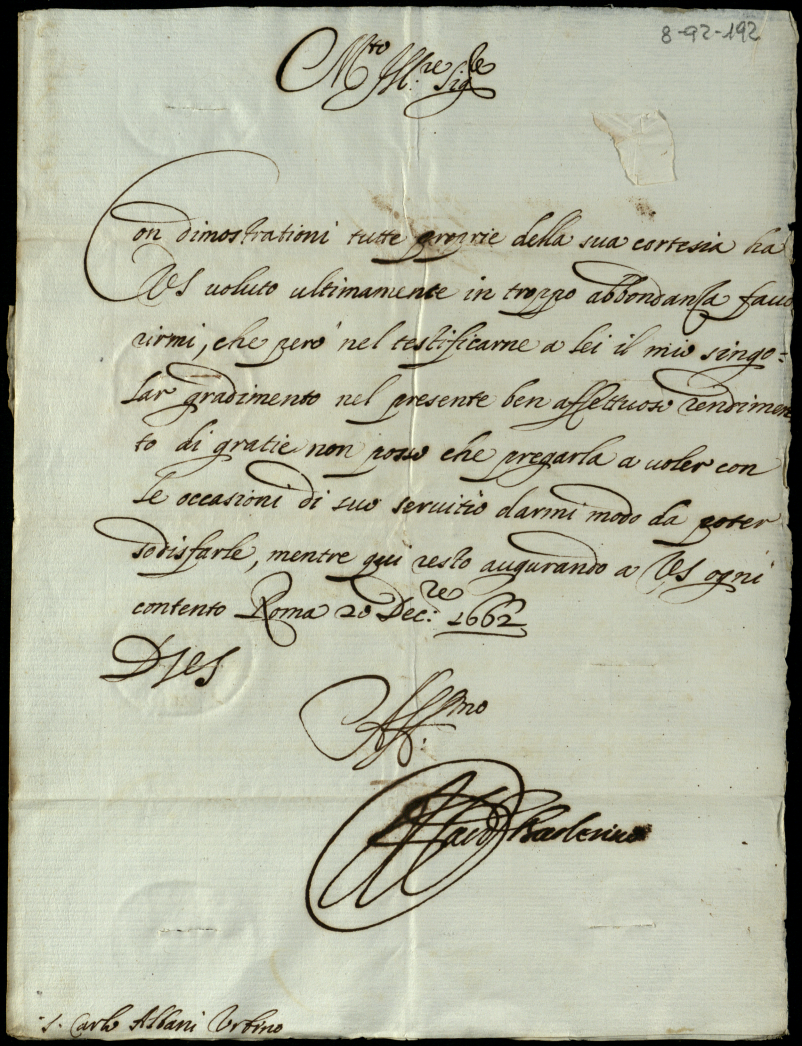 8-92-192
M.to Ill.re Sig.re
Con dimostrationi tutte proprie della sua cortesia ha
VS voluto ultimamente in troppo abbondanza favo
rirmi, che però nel testificarne a lei il mio singo=
lar gradimento nel presente ben affettuoso rendimen
to di gratie non posso che pregarla a voler con
le occasioni di suo servitio darmi modo da poter
sodisfarle, mentre qui resto augurando a VS ogni
contento Roma 20 Dec.re 1662
Aff.mo
Barberino
S. Carlo Albani Urbino